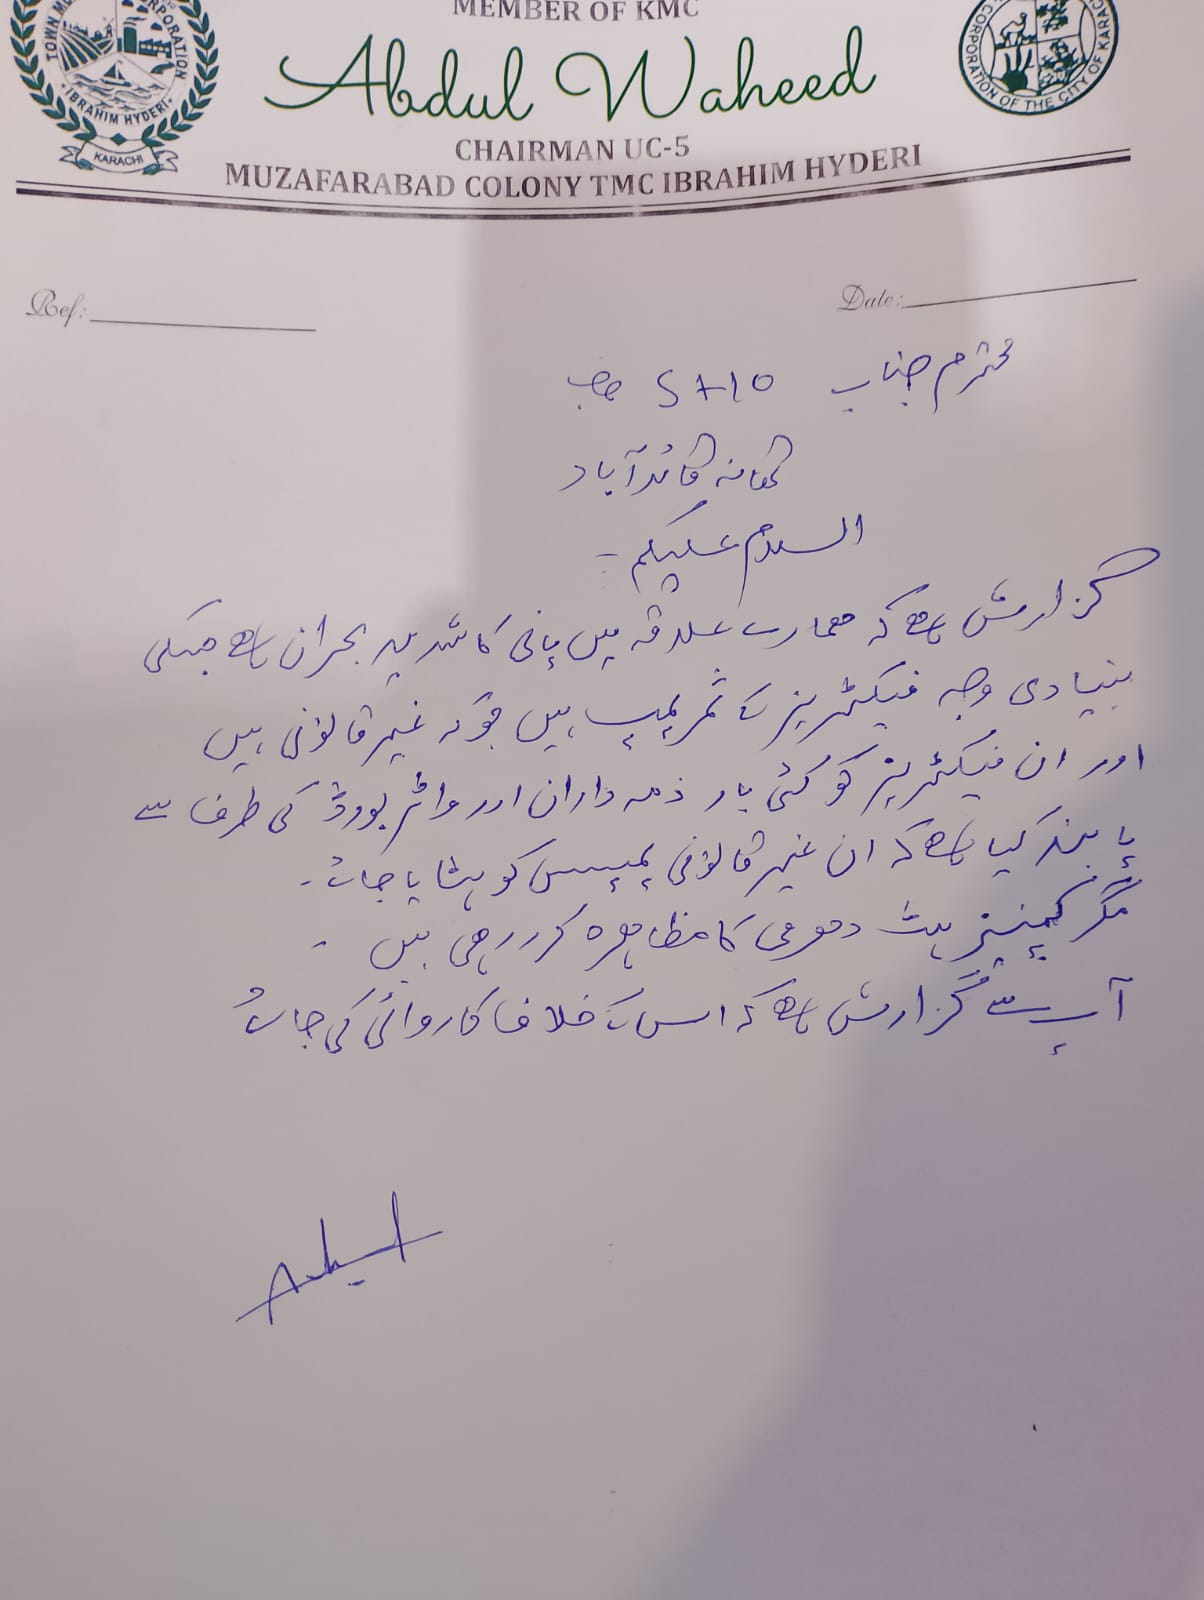 MEMBER OF KMC
Abdul Waheed
CHAIRMAN UC-5
MUZAFARABAD COLONY TMC IBRAHIM HYDERI
IBRAHIM HYDERI
KARACHI
CORPORATION OF THE CITY OF KARACHI
Ref:
Date:
محترم جناب SHO صاحب
تھانہ قائدآباد
السلام علیکم -
گزارش ہے کہ ہمارے علاقہ میں پانی کا شدید بحران ہے جسکی
بنیادی وجہ فیکٹریز کے پمپ ہیں جو کہ غیر قانونی ہیں
اور ان فیکٹریز کو کئی بار ذمہ داران اور واٹر بورڈ کی طرف سے
پابند کیا ہے کہ ان غیر قانونی پمپس کو ہٹایا جائے -
مگر کمپنیز ہٹ دھرمی کا مظاہرہ کر رہی ہیں -
آپ سے گزارش ہے کہ اس کے خلاف کاروائی کی جائے